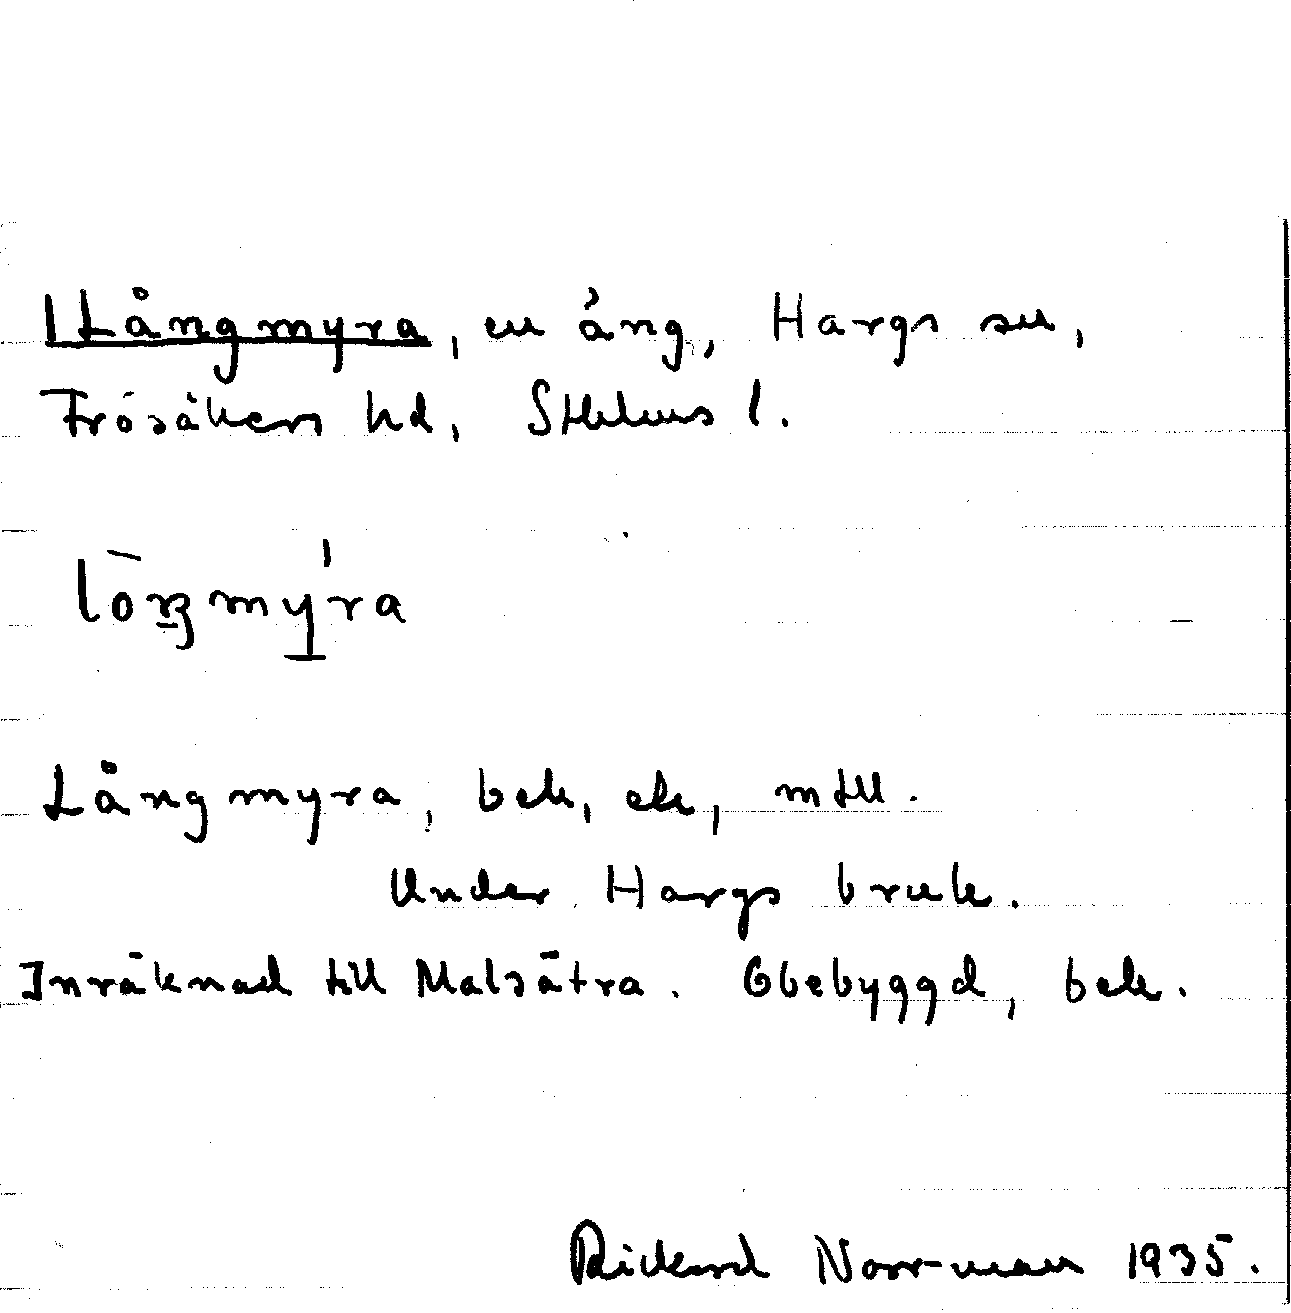 Långmyra, en äng, Hargs sn,
Frösåkers hd, Sthlms l.
Långmyra, bek, ek, mtll.
Under Hargs bruk.
Inräknad till Malsätra. Obebyggd, bek.
Rickard Norrman 1935.